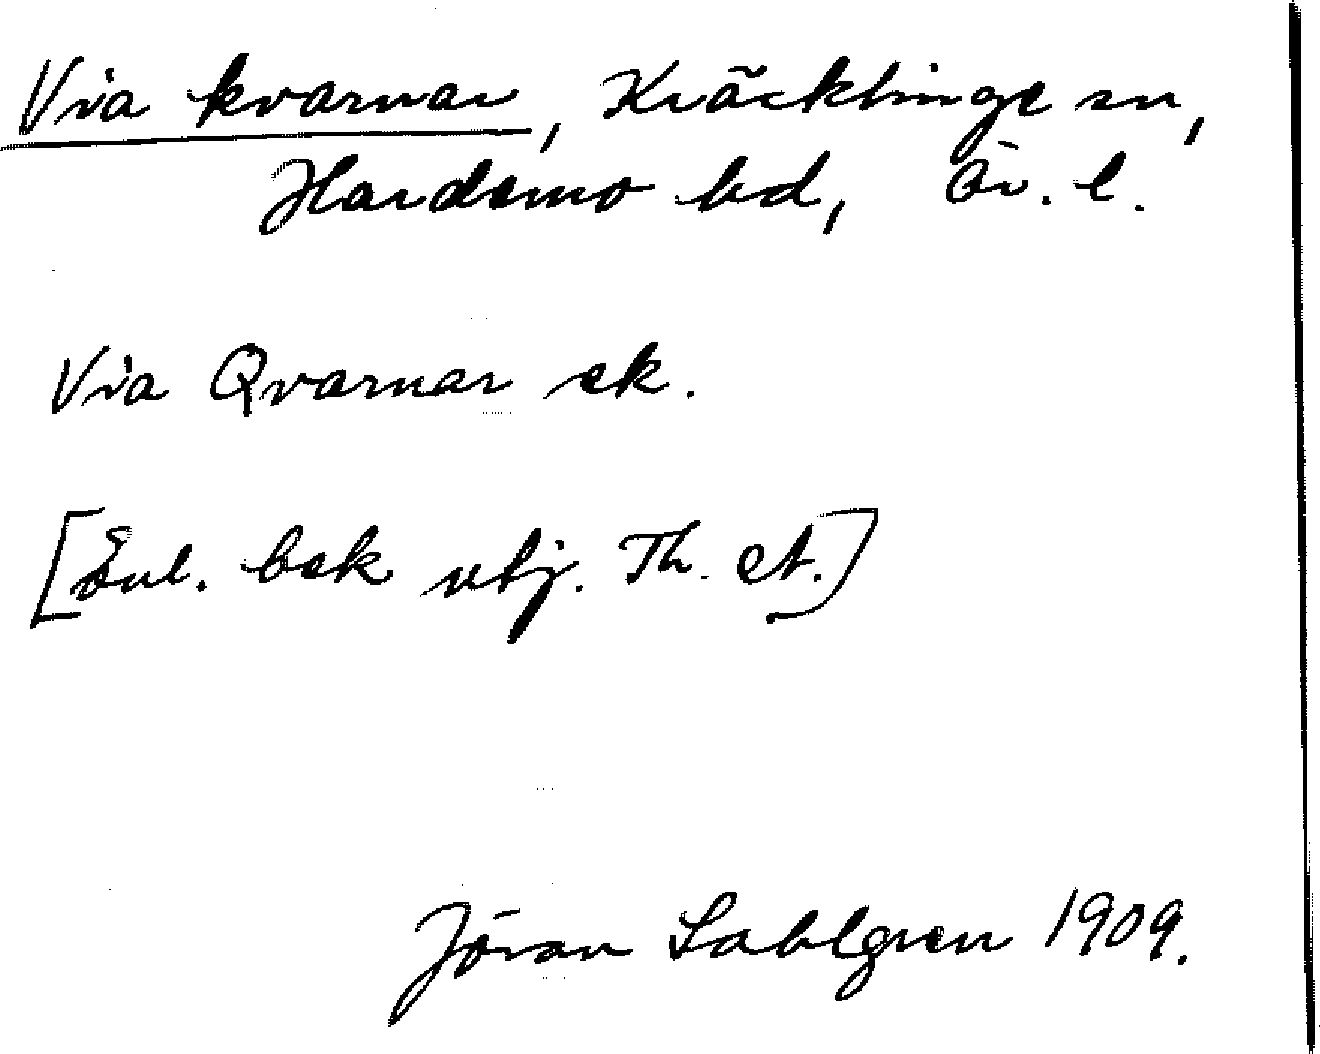 Via kvarnar, Kräcklinge sn,
Hardemo hd, Ör. l.
Via Qvarnar ek.
[Enl. bok utj. Th. A.]
Jöran Sahlgren 1909.